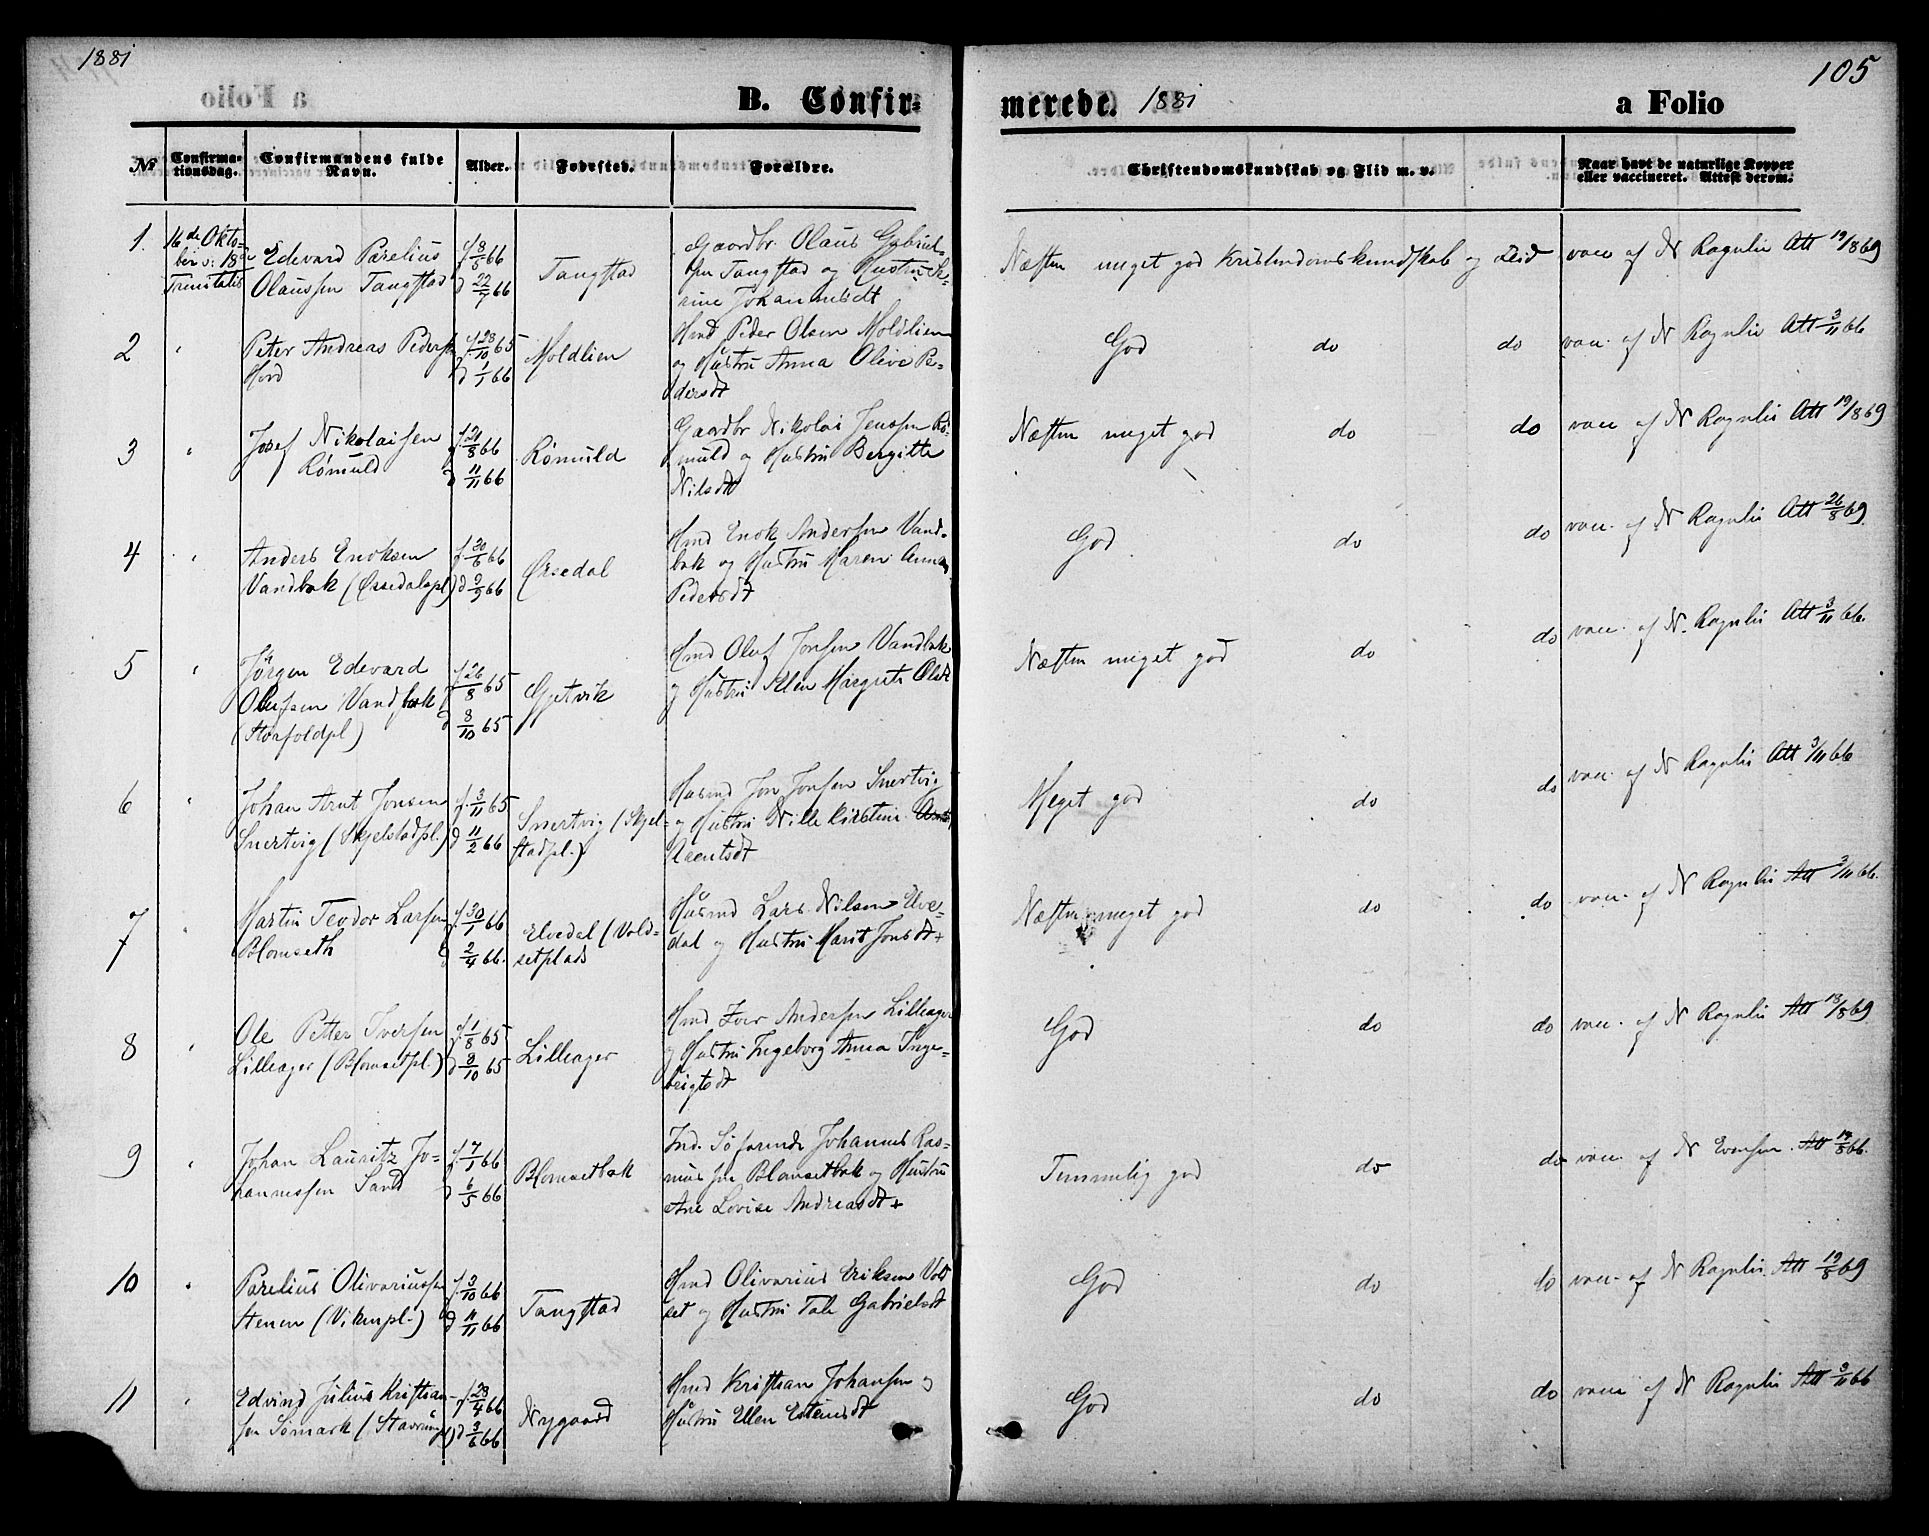 1881
105
B. Confir-
merede. 1881
a Folio
№
Confirma-
tionsdag.
Confirmandens fulde
Navn.
Alder.
Fødested.
Forældre.
Christendomskundskab og Flid m. v.
Naar havt de naturlige Kopper
eller vaccineret. Attest derom.
1.
16de Okto-
ber d: 18de
Trinitatis
Edevard Parelius
Olaussen Tangstad
f 8/5 66
d 22/7 66
Tangstad
Gaardbr. Olaus Gabriel-
sen Tangstad og Hustru
Johannesdt
Næsten meget god Kristendomskundskab og Flid
vacc af N Rognlie Att 19/8 69
2
"
Peter Andreas Pedersen
f 28/10 65
d 1/1 66
Moldlien
Hmd Peder Olsen Moldlien
og Hustru Anna Olive Pe-
dersdt
God do do
vacc. af N Rognlie Att 3/11 66
3
"
Josef Nikolaisen
Römuld
f 21/8 66
d 11/11 66
Römuld
Gaardbr Nikolai Jenssen Rö-
muld og Hustru Bergitte
Nilsdt
Næsten meget god do do
vacc af N Rognlie Att 19/8 69
4
"
Anders Enoksen
Vandbak (Øksedalspl)
f 30/6 66
d 2/9 66
Øksedal
Hmd Enok Andersen Vand-
bak og Hustru Maren Anna
Pedersdt
God do do
vacc. af N Rognlie Att 26/8 69
5
"
Jørgen Edevard
Olufsen Vandbak
(Storfoldpl)
f 26/8 65
d 8/10 65
Gjetvik
Hmd Oluf Jonsen Vandbak
og Hustru Elen Margrete Olsdt
Næsten meget god do do
vacc. af N. Rognlie Att 3/11 66.
6
"
Johan Arnt Jonsen
Snertvig (Skjelstadpl.)
f. 3/11 65
d 11/2 66
Snertvig (Skjel-
stadpl.)
Husmd Jon Jonsen Snertvig
og Hustru Nille Kirstine
Meget god do do
vacc. af N Rognlie Att 3/11 66
7
"
Martin Teodor Larsen
Blomseth
f. 30/1 66
d 2/4 66.
Elvedal (Vold-
setplads
Husmd Lars Nilsen Elve-
dal og Hustru Marit Jonsdt +
Næsten meget god do do
vacc. af N Rognlie Att 3/11 66.
8
"
Ole Petter Iversen
Lilleager (Blomsetpl.)
f. 1/8 65
d 8/10 65
Lilleager
Hmd Iver Andersen Lilleager
og Hustru Ingeborg Anna Inge-
brigtsdt
God do do
vacc. af N Rognlie Att 18/8 69
9
"
Johan Lauritz Jo-
hannessen Sand
f. 7/1 66
d 6/5 66
Blomsetbak
Ind. Söfarende Johannes Ras-
mussen Blomsetbak og Hustru
Ane Lovise Andreasdt +
Temmelig god do do
vacc. af N Evensen. Att 14/8 66.
10
"
Parelius Olivariussen
Stenen (Vikenpl.)
f. 3/10 66
d 11/11 66
Tangstad
Hmd Olivarius Eriksen Vold
set og Hustru Tale Gabrielsdt
God do do
vacc. af N Rognlie Att 19/8 69
11
"
Edvind Julius Kristian-
sen Sömark (Stavrungl)
f 28/4 66
d 3/6 66
Nygaard
Hmd Kristian Johansen og
Hustru Ellen Estensdt
God do do
vacc af N Rognlie Att 3/11 66